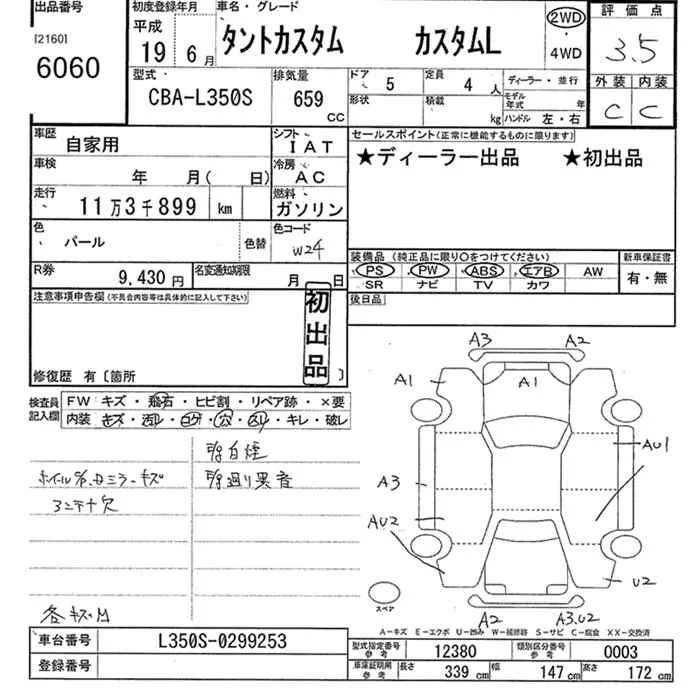 出品番号
[2160]
6060
初度登録年月
平成
19 6月
車名・グレード
タントカスタム カスタムL
2WD
・
4WD
評価点
3.5
型式
CBA-L350S
排気量
659
CC
ドア 5
定員 4 人
形状
積載 kg
ディーラー・並行
モデル年式 年
ハンドル 左・右
外装 内装
C C
車歴 自家用
シフト IAT
車検 年 月( 日)
冷房 AC
走行 11万3千899 km
燃料 ガソリン
色 パール
色替
色コード W24
R券 9,430円
名変通知期限 月 日
セールスポイント(正常に機能するものに限ります)
★ディーラー出品 ★初出品
装備品 (純正品に限り○をつけてください)
PS PW ABS エアB AW
SR ナビ TV カワ
新車保証書
有・無
後日品
注意事項申告欄(不具合内容等は具体的に記入して下さい)
初出品
修復歴 有〔箇所 〕
検査員記入欄
FW キズ・飛石・ヒビ割・リペア跡・×要
内装 キズ・汚レ・コゲ・穴・スレ・キレ・破レ
白煙
異音
ミラーキズ
欠
各キズ凹
A3 A2
A1 A1
AU1
A3
AU2
U2
スペア
A2 A3.U2
A－キズ E－エクボ U－凹み W－補修跡 S－サビ C－腐食 XX－交換済
車台番号 L350S-0299253
登録番号
型式指定番号 参考 12380
類別区分番号 参考 0003
車庫証明用 参考 長さ 339 cm 幅 147 cm 高さ 172 cm